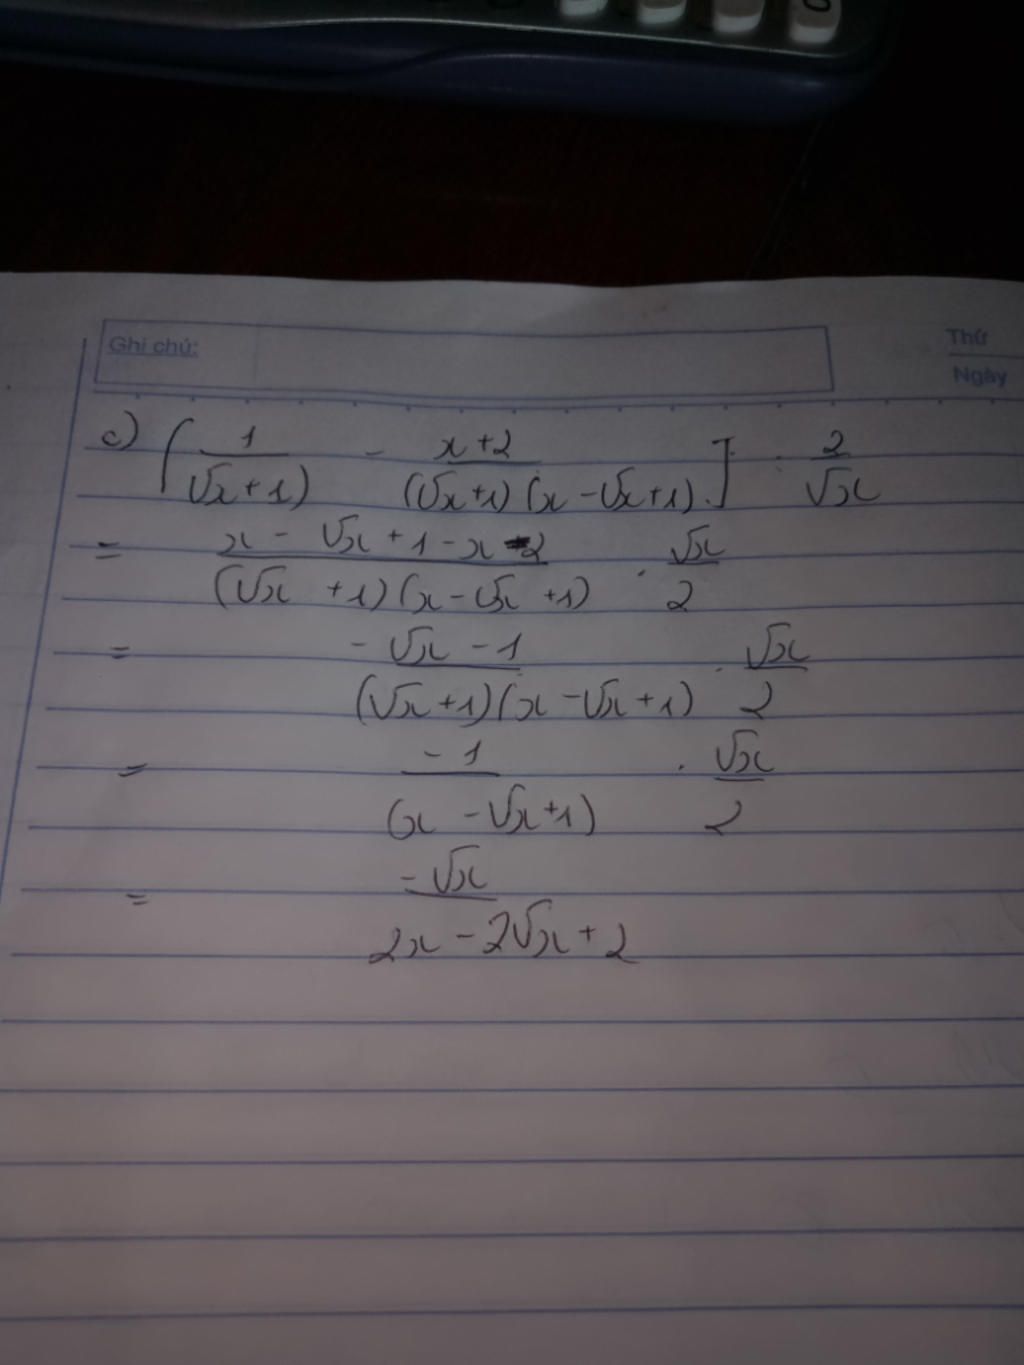 Ghi chú:
Thứ
Ngày
c) [1/(√x+1) - (x+2)/((√x+1)(x-√x+1))] : 2/√x
= (x - √x + 1 - x - 2)/((√x +1)(x-√x+1)) . √x/2
= (-√x - 1)/((√x+1)(x-√x+1)) . √x/2
= -1/(x-√x+1) . √x/2
= -√x/(2x-2√x+2)